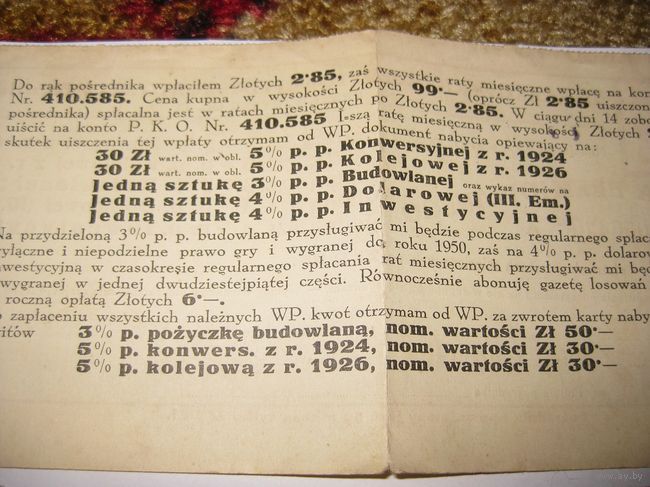 Do rąk pośrednika wpłaciłem Złotych 2·85, zaś wszystkie raty miesięczne wpłacę na kon
Nr. 410.585. Cena kupna w wysokości Złotych 99·— (oprócz Zł 2·85 uiszczon
pośrednika) spłacalna jest w ratach miesięcznych po Złotych 2·85. W ciągu dni 14 zobo
uiścić na konto P. K. O. Nr. 410.585 I-szą ratę miesięczną w wysokości Złotych
skutek uiszczenia tej wpłaty otrzymam od WP. dokument nabycia opiewający na:
30 Zł wart. nom. w obl. 5% p. p. Konwersyjnej z r. 1924
30 Zł wart. nom. w obl. 5% p. p. Kolejowej z r. 1926
Jedną sztukę 3% p. p. Budowlanej oraz wykaz numerów na
Jedną sztukę 4% p. p. Dolarowej (III. Em.)
Jedną sztukę 4% p. p. Inwestycyjnej
Na przydzieloną 3% p. p. budowlaną przysługiwać mi będzie podczas regularnego spłac
yłączne i niepodzielne prawo gry i wygranej do roku 1950, zaś na 4% p. p. dolarow
nwestycyjną w czasokresie regularnego spłacania rat miesięcznych przysługiwać mi będ
wygranej w jednej dwudziestejpiątej części. Równocześnie abonuję gazetę losowań
roczną opłatą Złotych 6·—.
o zapłaceniu wszystkich należnych WP. kwot otrzymam od WP. za zwrotem karty naby
ritów 3% p. pożyczkę budowlaną, nom. wartości Zł 50·—
5% p. konwers. z r. 1924, nom. wartości Zł 30·—
5% p. kolejową z r. 1926, nom. wartości Zł 30·—
www.ay.by